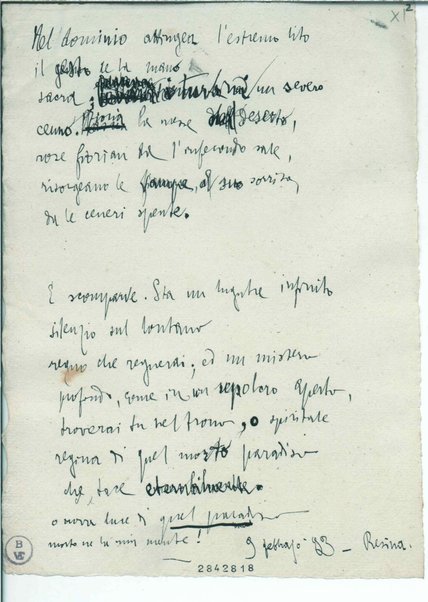 XI 2
Nel dominio attingea l'estremo lito
il gesto de la mano
sacra, un severo
cenno. la nave del deserto,
rose fiorian da l'infecondo sale,
risorgeano le vampe, al suo sorriso,
da le ceneri spente.
E scomparve. Sta un lugubre infinito
silenzio sul lontano
regno che regnerai; ed un mistero
profondo, come in un sepolcro aperto,
troverai tu nel trono, o spiritale
regina di quel morto paradiso
che tace eternalmente.
o nova luce di quel paradiso
morto ne la mia mente!
9 febbrajo 93 – Resina.
B
VE
2842818